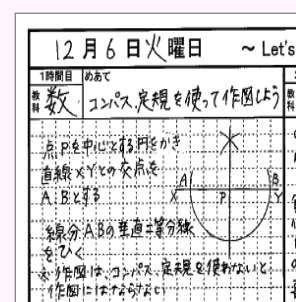 12月6日火曜日 ~ Let's
1時間目 めあて
教科 数 コンパス、定規を使って作図しよう
点Pを中心とする円をかき
直線XYとの交点を
A、Bとする
A B
X P Y
線分ABの垂直二等分線
をひく
※作図は、コンパス、定規を使わないと
作図にはならない